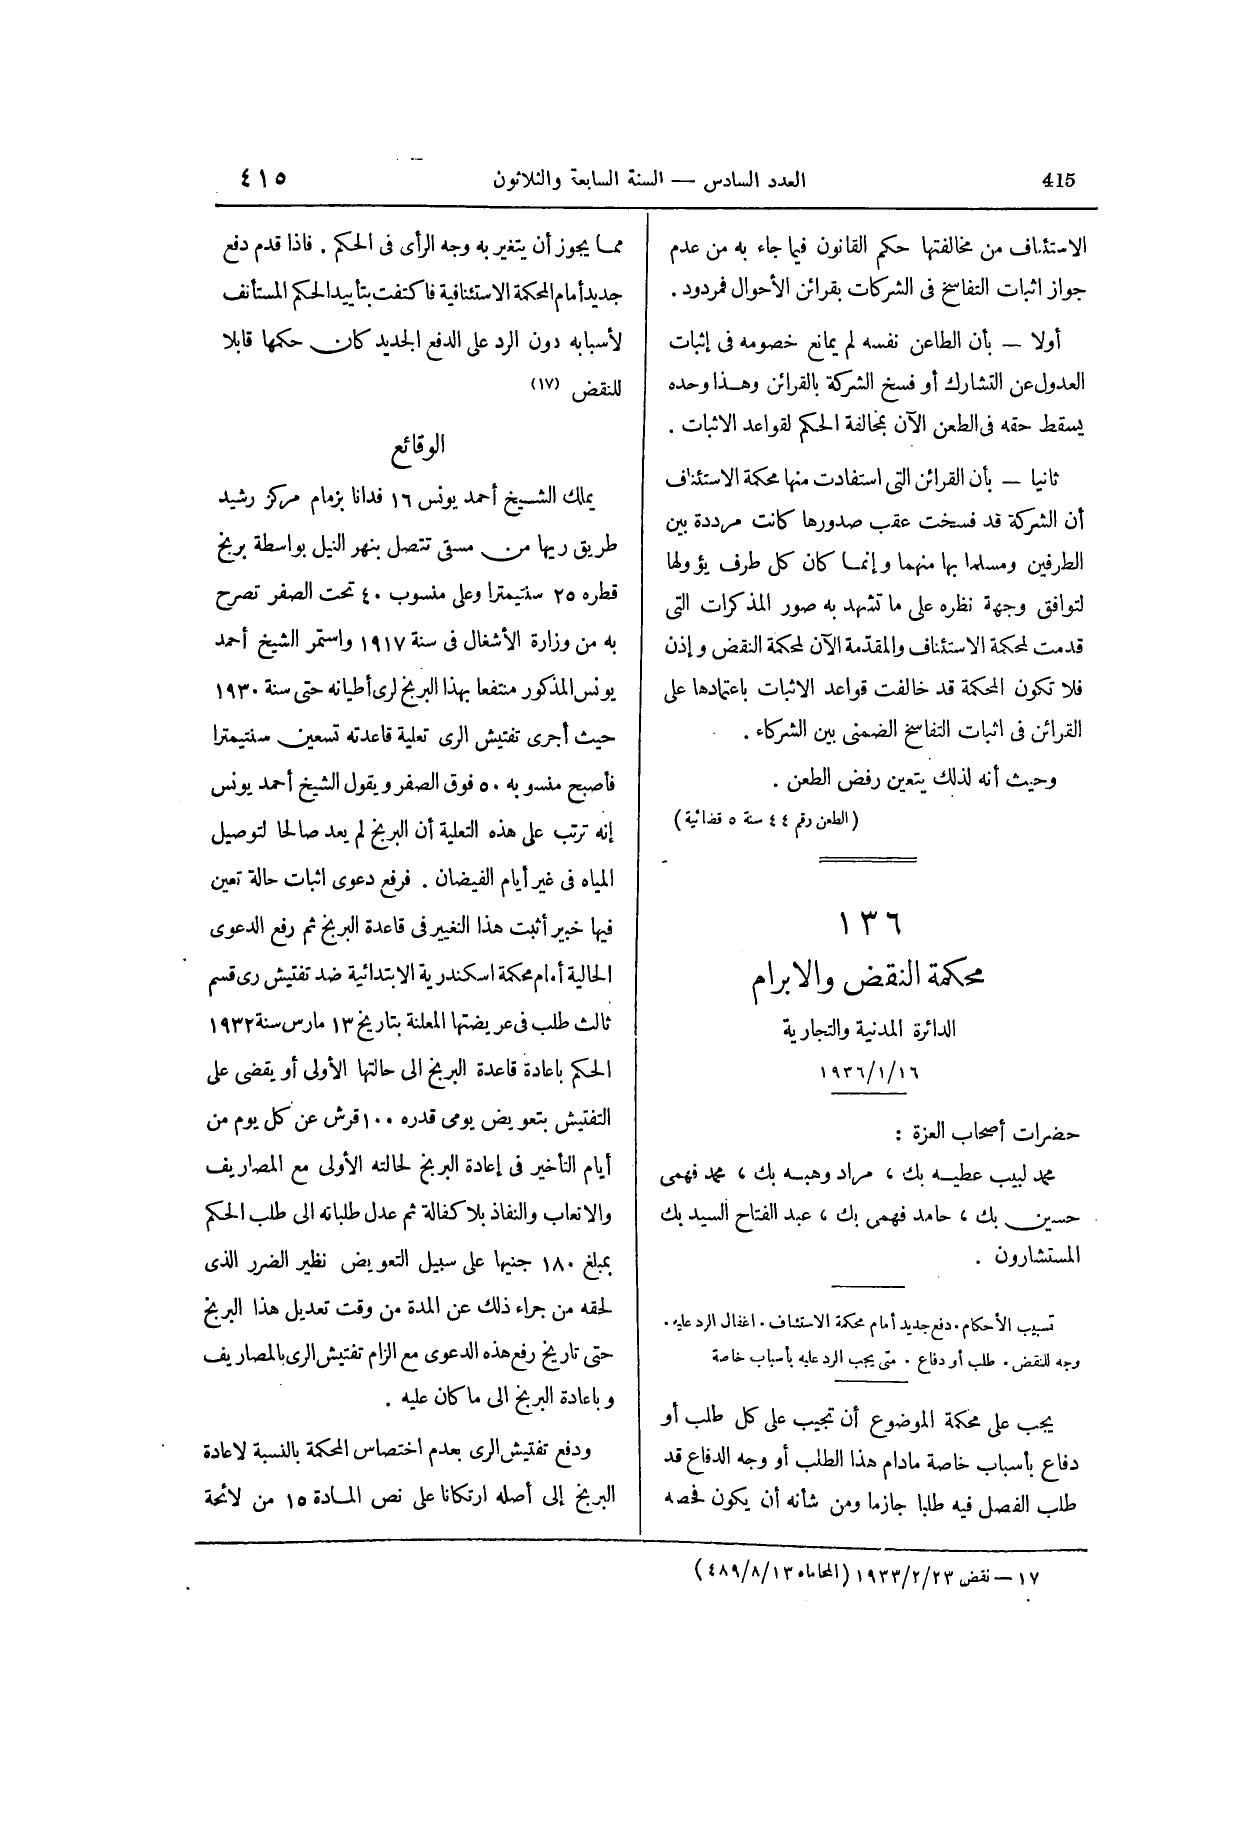 415 العدد السادس — السنة السابعة والثلاثون ٤١٥
الاستئناف من مخالفتها حكم القانون فيما جاء به من عدم
جواز اثبات التفاسخ فى الشركات بقرائن الأحوال فمردود .
أولا — بأن الطاعن نفسه لم يمانع خصومه فى إثبات
العدول عن التشارك أو فسخ الشركة بالقرائن وهذا وحده
يسقط حقه فى الطعن الآن بمخالفة الحكم لقواعد الاثبات .
ثانيا — بأن القرائن التى استفادت منها محكمة الاستئناف
أن الشركة قد فسخت عقب صدورها كانت مرددة بين
الطرفين ومسلما بها منهما وإنما كان كل طرف يؤولها
لتوافق وجهة نظره على ما تشهد به صور المذكرات التى
قدمت لمحكمة الاستئناف والمقدمة الآن لمحكمة النقض وإذن
فلا تكون المحكمة قد خالفت قواعد الاثبات باعتمادها على
القرائن فى اثبات التفاسخ الضمنى بين الشركاء .
وحيث أنه لذلك يتعين رفض الطعن .
(الطعن رقم ٤٤ سنة ٥ قضائية)
١٣٦
محكمة النقض والابرام
الدائرة المدنية والتجارية
١٩٣٦/١/١٦
حضرات أصحاب العزة :
محمد لبيب عطيه بك ، مراد وهبه بك ، محمد فهمى
حسين بك ، حامد فهمى بك ، عبد الفتاح السيد بك
المستشارون .
تسبيب الأحكام . دفع جديد أمام محكمة الاستئناف . اغفال الرد عليه .
وجه للنقض . طلب أو دفاع . متى يجب الرد عليه بأسباب خاصة
يجب على محكمة الموضوع أن تجيب على كل طلب أو
دفاع بأسباب خاصة مادام هذا الطلب أو وجه الدفاع قد
طلب الفصل فيه طلبا جازما ومن شأنه أن يكون لحصه
مما يجوز أن يتغير به وجه الرأى فى الحكم . فاذا قدم دفع
جديد أمام المحكمة الاستئنافية فاكتفت بتأييد الحكم المستأنف
لأسبابه دون الرد على الدفع الجديد كان حكمها قابلا
للنقض (١٧)
الوقائع
يملك الشيخ أحمد يونس ١٦ فدانا بزمام مركز رشيد
طريق ريها من مسقى تتصل بنهر النيل بواسطة بربخ
قطره ٢٥ سنتيمترا وعلى منسوب ٤٠ تحت الصفر تصرح
به من وزارة الأشغال فى سنة ١٩١٧ واستمر الشيخ أحمد
يونس المذكور منتفعا بهذا البربخ لرى أطيانه حتى سنة ١٩٣٠
حيث أجرى تفتيش الرى تعلية قاعدته تسعين سنتيمترا
فأصبح منسوبه ٥٠ فوق الصفر ويقول الشيخ أحمد يونس
إنه ترتب على هذه التعلية أن البربخ لم يعد صالحا لتوصيل
المياه فى غير أيام الفيضان . فرفع دعوى اثبات حالة تعين
فيها خبير أثبت هذا التغيير فى قاعدة البربخ ثم رفع الدعوى
الحالية أمام محكمة اسكندرية الابتدائية ضد تفتيش رى قسم
ثالث طلب فى عريضتها المعلنة بتاريخ ١٣ مارس سنة ١٩٣٢
الحكم باعادة قاعدة البربخ الى حالتها الأولى أو يقضى على
التفتيش بتعويض يومى قدره ١٠٠ قرش عن كل يوم من
أيام التأخير فى إعادة البربخ لحالته الأولى مع المصاريف
والاتعاب والنفاذ بلا كفالة ثم عدل طلباته الى طلب الحكم
بمبلغ ١٨٠ جنيها على سبيل التعويض نظير الضرر الذى
لحقه من جراء ذلك عن المدة من وقت تعديل هذا البربخ
حتى تاريخ رفع هذه الدعوى مع الزام تفتيش الرى بالمصاريف
وباعادة البربخ الى ما كان عليه .
ودفع تفتيش الرى بعدم اختصاص المحكمة بالنسبة لاعادة
البربخ إلى أصله ارتكانا على نص المادة ١٥ من لائحة
١٧ — نقض ١٩٣٣/٢/٢٣ (المحاماه ٤٨٩/٨/١٣)